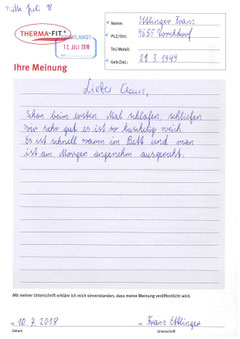 Mitte Juli 18
THERMA-FIT®
13. JULI 2018
Name: Ettlinger Franz
PLZ/Ort: 4655 Vorchdorf
Tel/Mobil:
Geb.Dat.: 21.3.1949
Ihre Meinung
Lieber Claus,
Schon beim ersten Mal schlafen, schliefen
wir sehr gut es ist so kuschelig weich.
Es ist schnell warm im Bett und man
ist am Morgen angenehm ausgeruht.
Mit meiner Unterschrift erkläre ich mich einverstanden, dass meine Meinung veröffentlicht wird.
10.7.2018 Franz Ettlinger
Datum Unterschrift